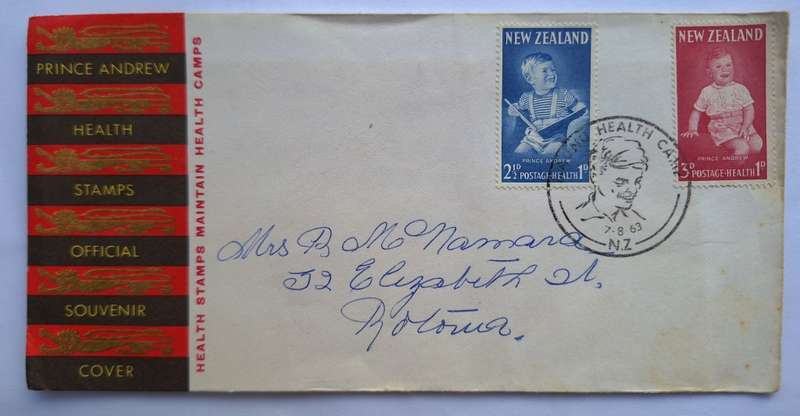 PRINCE ANDREW
HEALTH
STAMPS
OFFICIAL
SOUVENIR
COVER
HEALTH STAMPS MAINTAIN HEALTH CAMPS
NEW ZEALAND
PRINCE ANDREW
2½D POSTAGE-HEALTH 1D
NEW ZEALAND
PRINCE ANDREW
3D POSTAGE-HEALTH 1D
HEALTH CAMP
7-8 63
N.Z
Mrs B McNamara
52 Elizabeth St.
Rotoma.